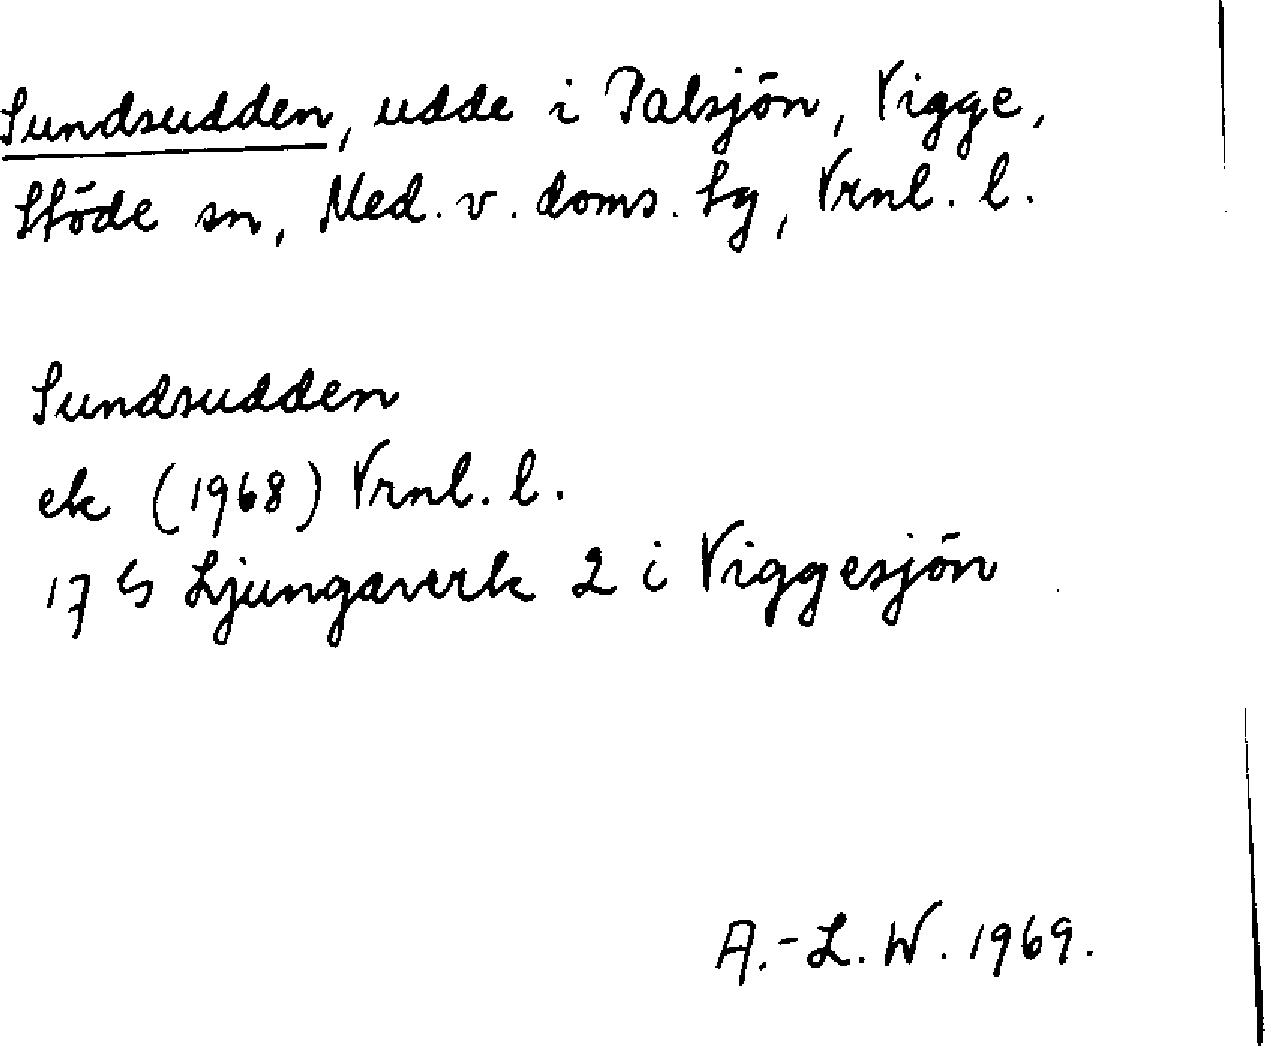 Sundsudden, udde i Palsjön, Vigge,
Stöde sn, Med. v. doms. tg, Vrnl. l.
Sundsudden
ek (1968) Vrnl. l.
17 G Ljungaverk 2 i Viggesjön
A.-L. W. 1969.